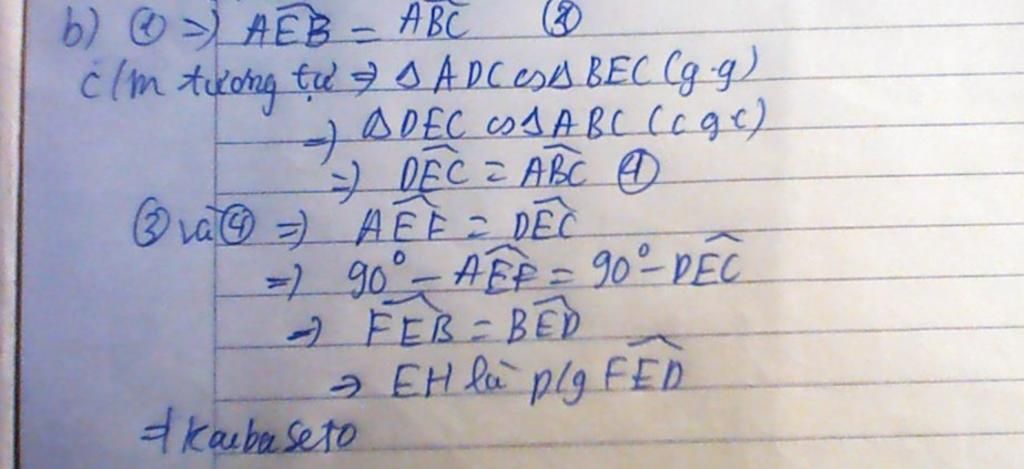 b) ① => AEB = ABC ③
c/m tương tự => Δ ADC ∽ Δ BEC (g.g)
=> Δ DEC ∽ Δ ABC (c g c)
=> DEC = ABC ④
③ và ④ => AEF = DEC
=> 90° - AEF = 90° - DEC
=> FEB = BED
=> EH là p/g FED
=> Kaibaseto